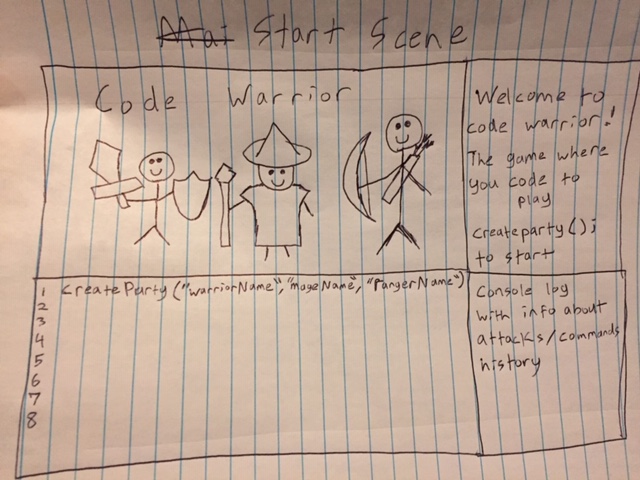 Mai Start Scene
Code Warrior
Welcome to
code warrior!
The game where
you code to
play
createparty();
to start
1 createParty("warriorName", "mageName", "rangerName")
2
3
4
5
6
7
8
Console log
with info about
attacks/commands
history